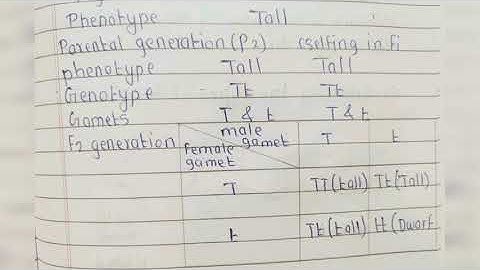 Phenotype Tall
Parental generation (P2) (selfing in Fi
phenotype Tall Tall
Genotype Tt Tt
Gamets T & t T & t
F2 generation male gamet T t
female gamet
T TT (tall) Tt (Tall)
t Tt (tall) tt (Dwarf